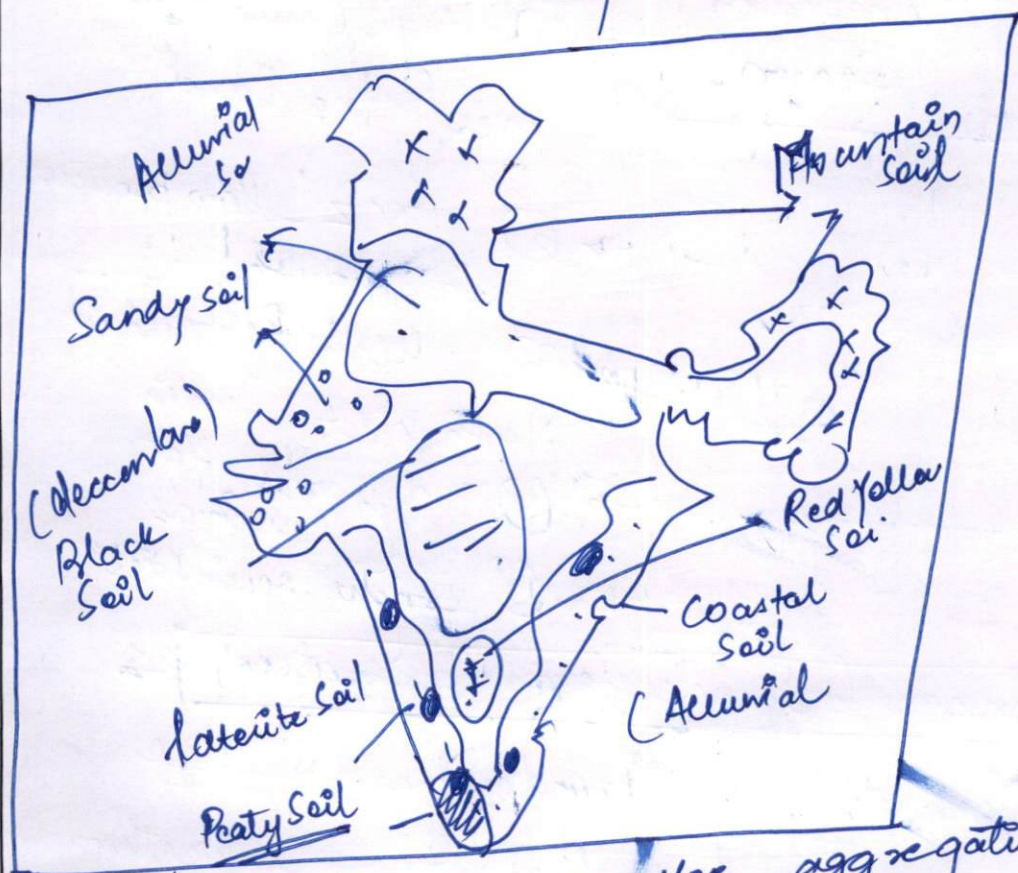 Alluvial
so
Mountain
soil
Sandy soil
(deccan lava)
Black
soil
Red Yellow
Soi
Coastal
soil
(Alluvial
laterite soil
Peaty Soil
aggregati